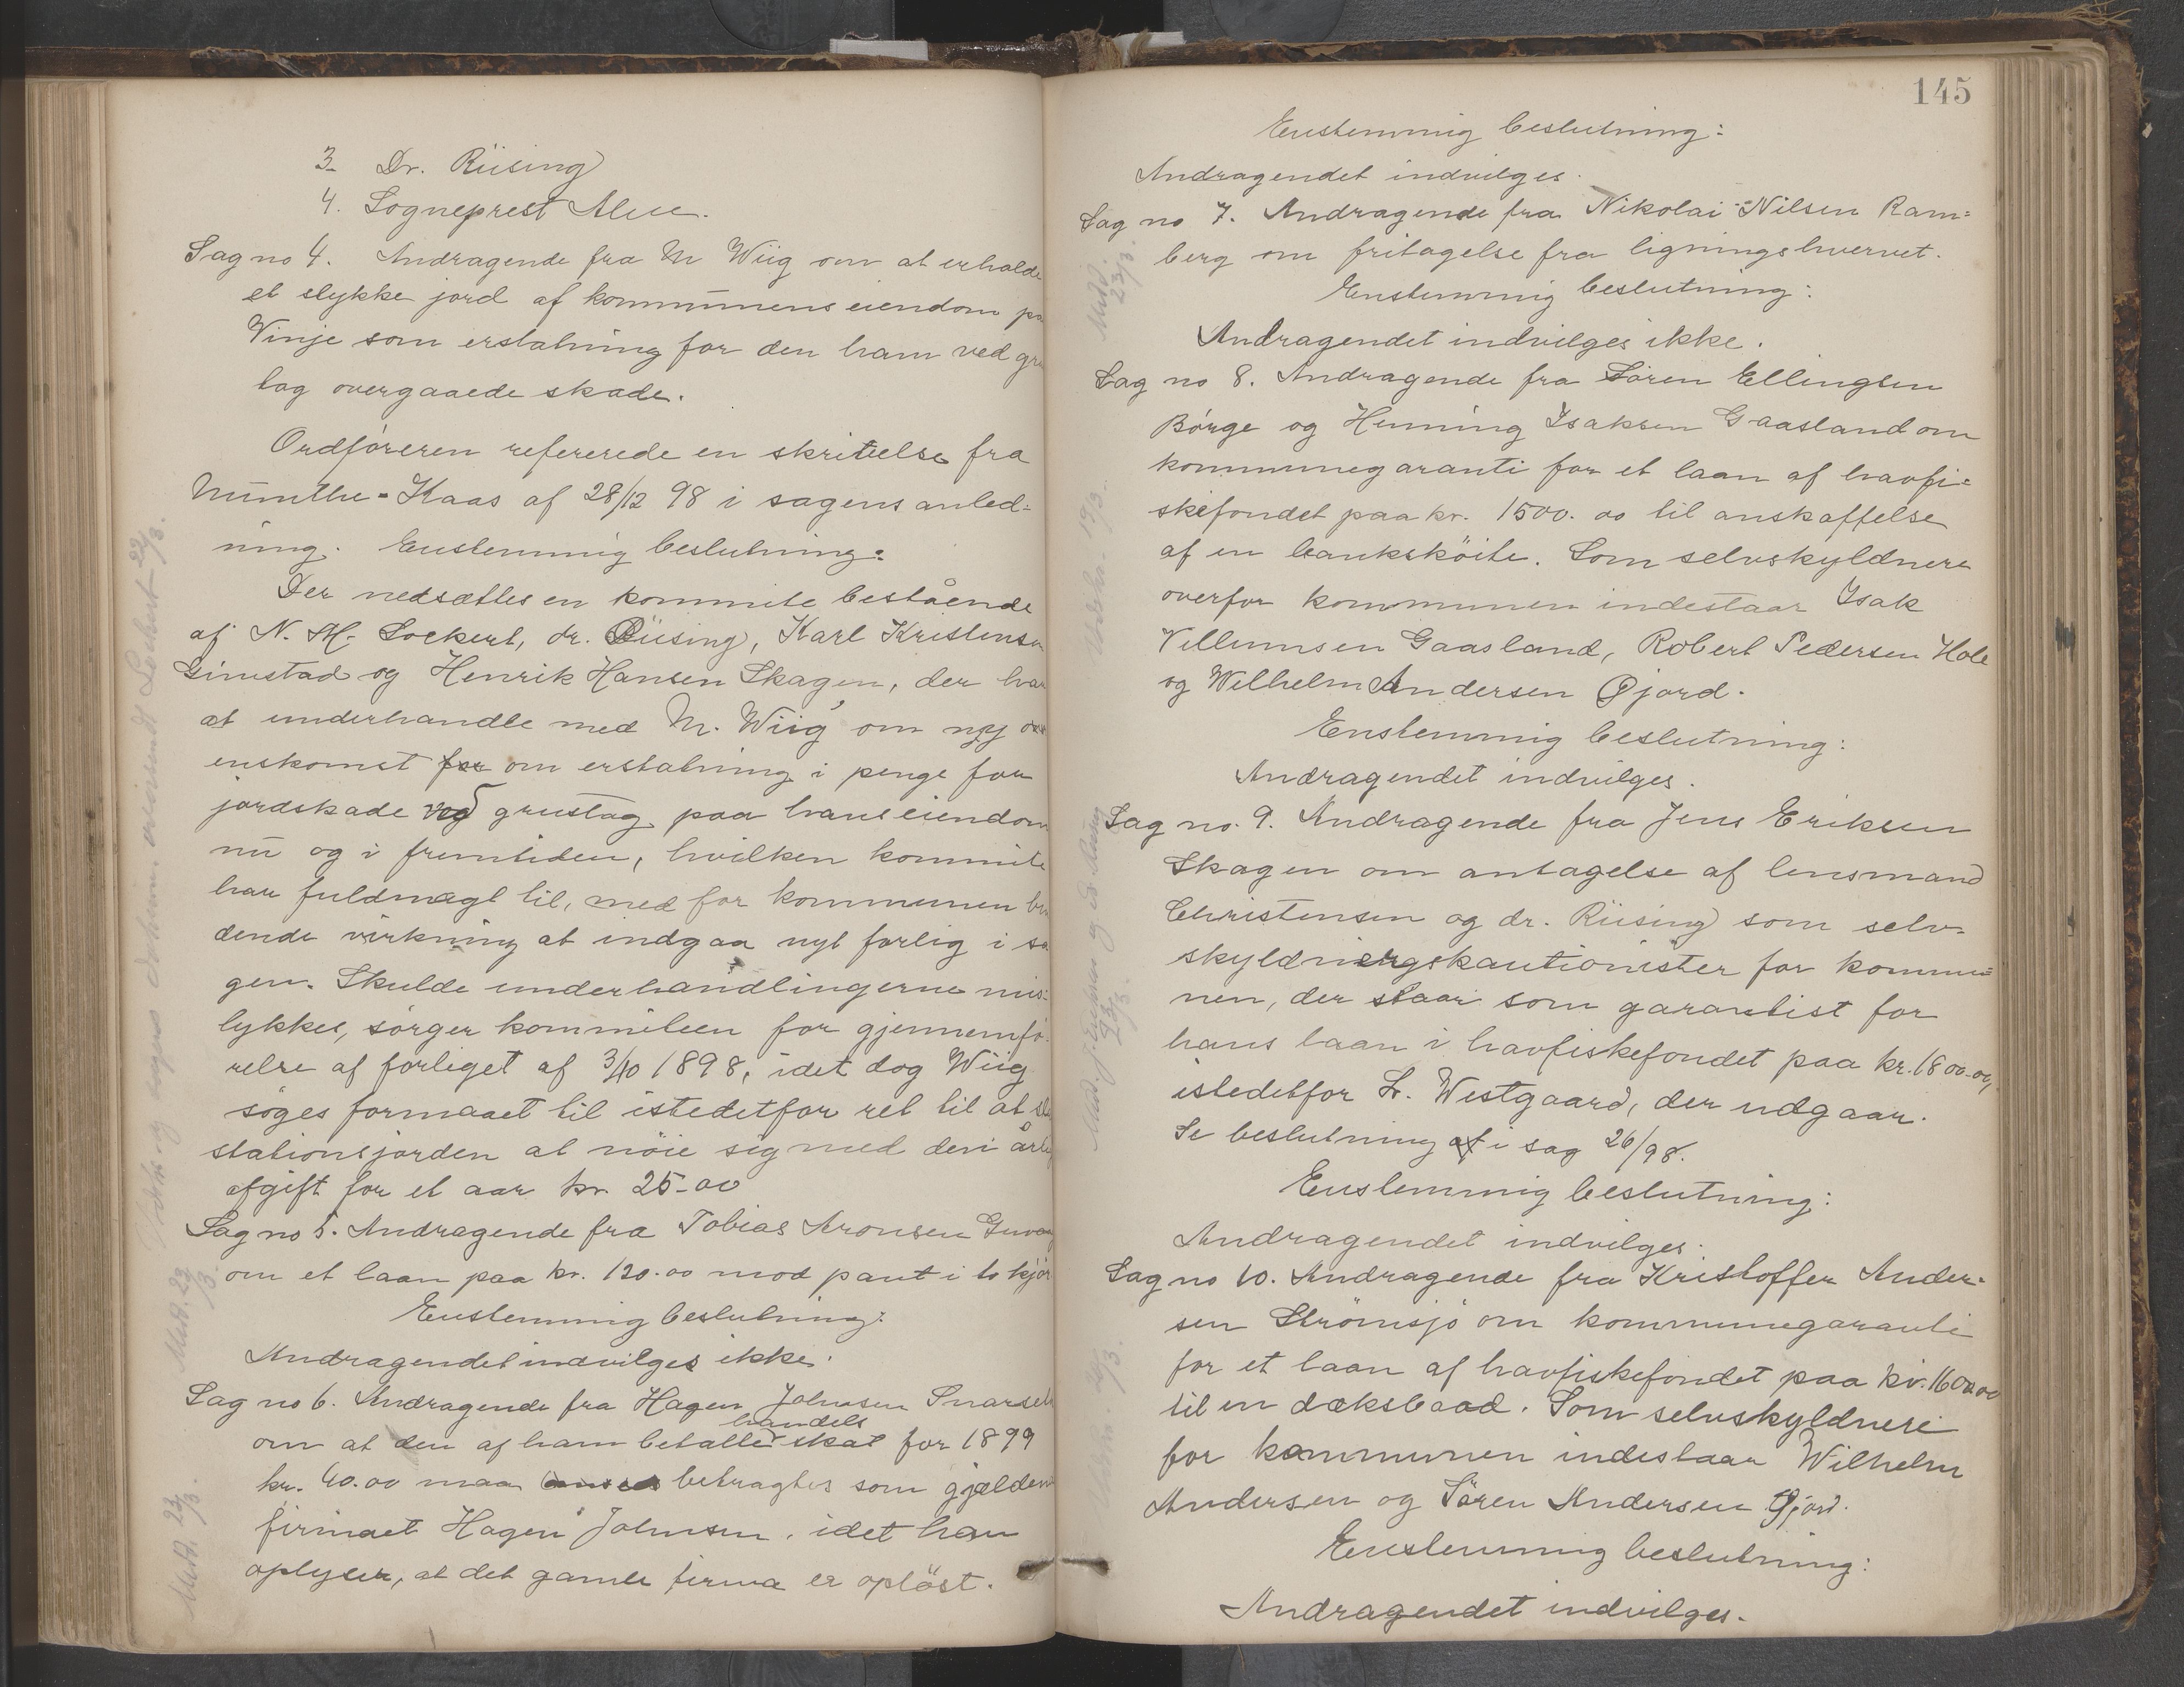 3. Dr. Rüsing
4. Sogneprest Alue.
Sag no 4. Andragende fra M Wiig om at erholde
et stykke jord af kommunens eiendom
Vinje som erstatning for den ham ved
tag overgaaede skade.
Ordföreren refererede en skrivelse fra
Münthe-Kaas af 28/12 98 i sagens anled=
ning. Enstemmig beslutning:
Der nedsættes en kommite bestående
af N. M. Lockert, dr. Rüsing, Karl Kristensen
Gimstad og Henrik Hansen Skagen, der har
at underhandle med M. Wiig om ny
enskomst for om erstatning i penge for
jordskade ved grustag paa hans eiendom
nu og i fremtiden, hvilken kommite
har fuldmagt til, med for kommunen
dende virkning at indgaa nyt forlig i sa
gen. Skulde underhandlingerne mis=
lykkes, sörger kommiteen for gjennemfö
relse af forliget af 3/10 1898, idet dog Wiig
söges formaaet til istedetfor ret til at
stationsjorden at nöie sig med den
afgift for et aar kr. 25-00
Sag no 5. Andragende fra Tobias Aronsen
om et laan paa kr. 120.00 mod pant i to kjör
Enstemmig beslutning:
Andragendet indvilges ikke.
Sag no 6. Andragende fra Hagen Johnsen
handels
om at den af ham betalte skat for 1899
kr. 40.00 maa betragtes som gjælden
firmaet Hagen Johnsen, idet han
oplyser, at det gamle firma er oplöst.
Medd. 23/3.
Medd. 23/3.
145
Enstemmig beslutning:
Andragendet indvilges.
Sag no 7. Andragende fra Nikolai Nilsen Ram=
berg om fritagelse fra ligningshvervet.
Enstemmig beslutning:
Andragendet indvilges ikke.
Sag no 8. Andragende fra Sören Ellingsen
Börge og Henning Isaksen Gaasland om
kommunegaranti for et laan af havfi=
skefondet paa kr. 1500.00 til anskaffelse
af en banksköite. Som selvskyldnere
overfor kommunen indestaar Isak
Villumsen Gaasland, Robert Pedersen Hole
og Wilhelm Andersen Gjord.
Enstemmig beslutning:
Andragendet indvilges.
Sag no. 9. Andragende fra Jens Eriksen
Skagen om antagelse af lensmand
Christensen og dr. Rüsing som selv-
skyldnergskautionister for kommu=
nen, der staar som garantist for
hans laan i havfiskefondet paa kr. 1800-00,
istedetfor Lr. Westgaard, der udgaar.
Se beslutning af i sag 26/98.
Enstemmig beslutning:
Andragendet indvilges.
Sag no 10. Andragende fra Kristoffer Ander=
sen Strömsjö om kommunegaranti
for et laan af havfiskefondet paa kr. 1600.00
til en dæksbaad. Som selvskyldnere
for kommunen indestaar Wilhelm
Andersen og Sören Andersen Gjord.
Enstemmig beslutning:
Andragendet indvilges.
Medd. 23/3.